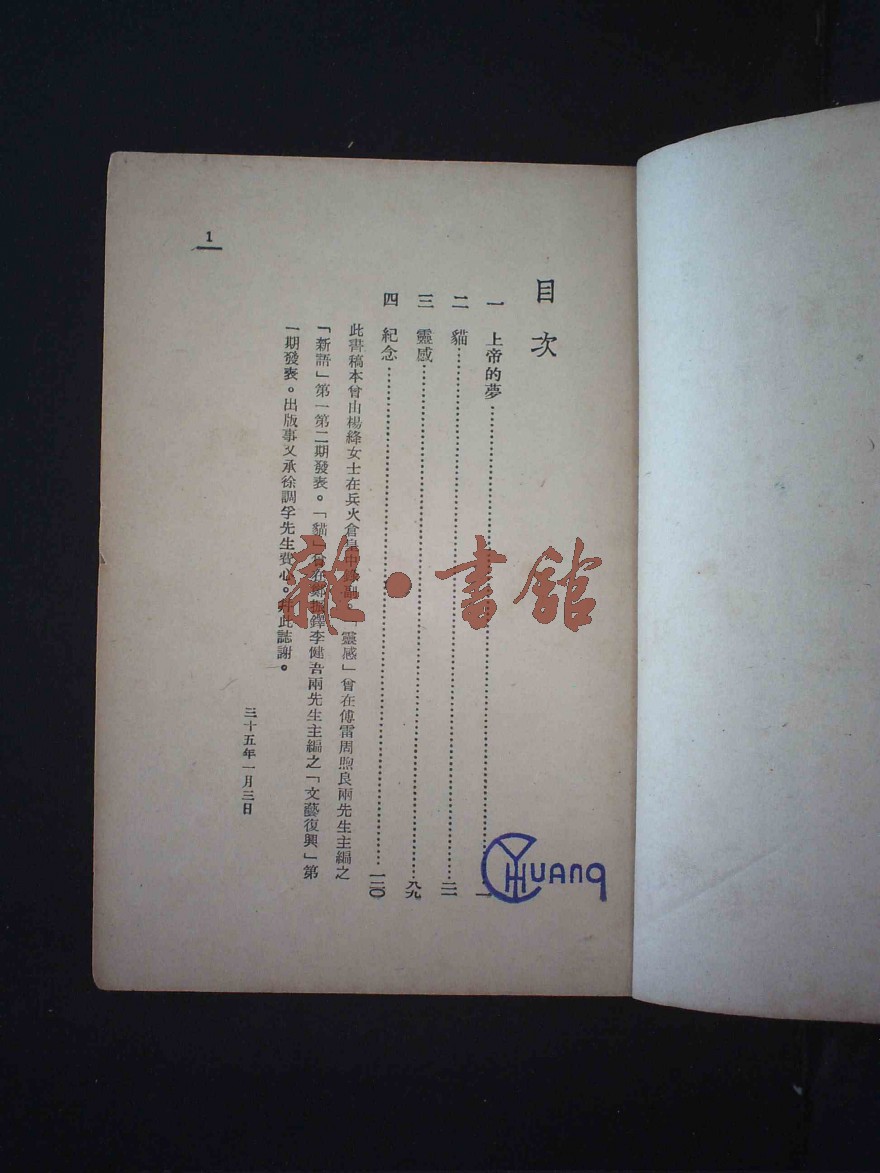 目次
一 上帝的夢……一
二 貓……二一
三 靈感……八九
四 紀念……一二〇
此書稿本曾由楊絳女士在兵火倉皇中錄副。「靈感」曾在傅雷周煦良兩先生主編之
「新語」第一第二期發表。「貓」曾在鄭振鐸李健吾兩先生主編之「文藝復興」第
一期發表。出版事又承徐調孚先生費心。幷此誌謝。
三十五年一月三日
1
雜·書館
CYHUANG